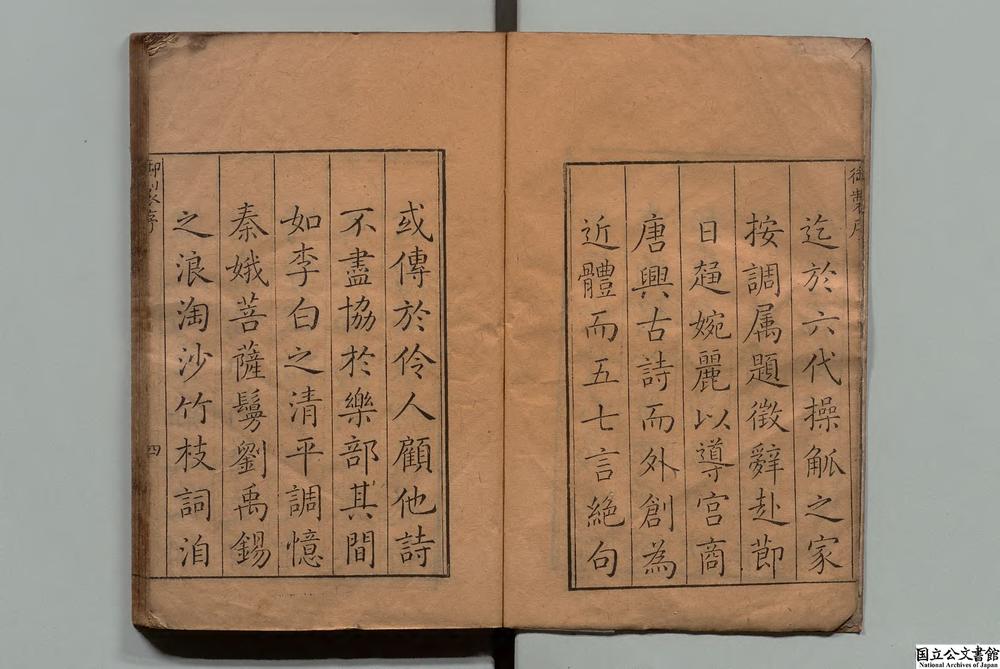 御製序
迄於六代操觚之家
按調属題徵辭赴節
日趨婉麗以導宫商
唐興古詩而外創為
近體而五七言絕句
或傳於伶人顧他詩
不盡協於樂部其間
如李白之清平調憶
秦娥菩薩鬘劉禹錫
之浪淘沙竹枝詞洎
御製序
四
国立公文書館
National Archives of Japan